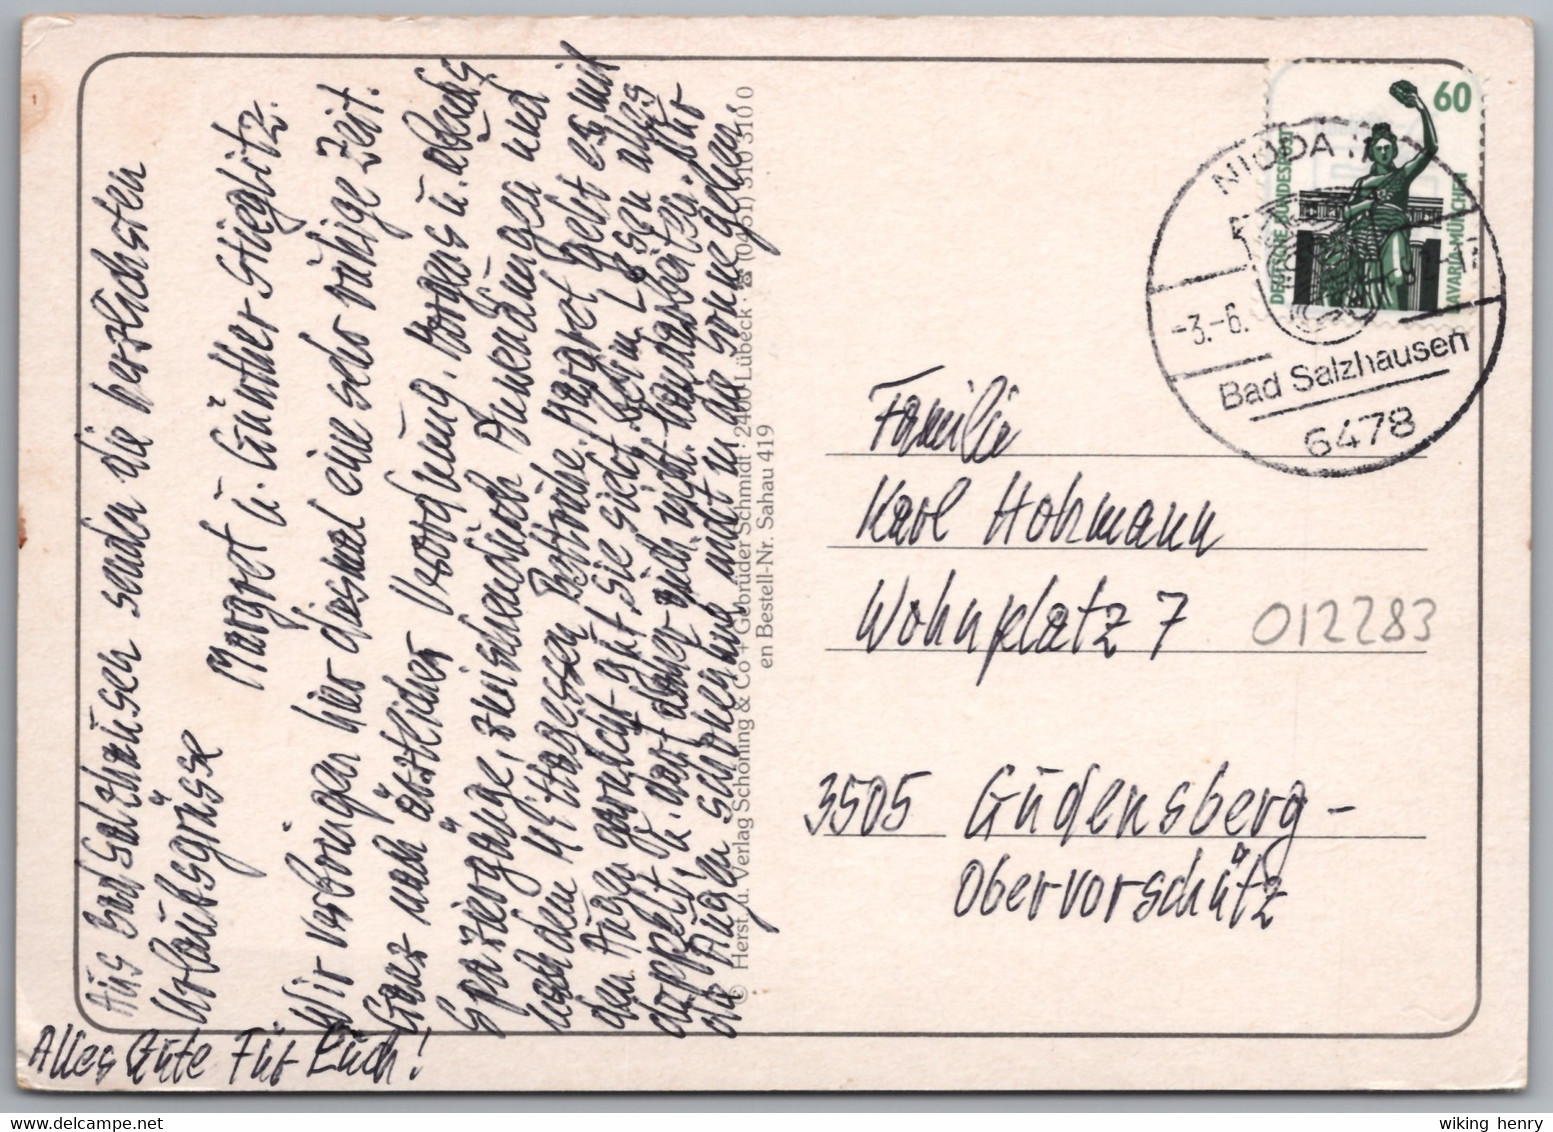 Aus Bad Salzhausen senden die herzlichsten
Urlaubsgrüsse
Margret u. Günther Stieglitz.
Wir verbringen hier diesmal eine sehr ruhige Zeit.
Ganz nach ärztlicher Verordnung. Morgens u. abends
Spaziergänge, zwischendurch Anwendungen und
nach dem Mittagessen Bettruhe. Margret geht es mit
den Augen gut sie sieht beim Lesen alles
doppelt, u. darf daher auch nicht handarbeiten. Nur
die Augen schonen und nicht in die Sonne gehen.
Alles Gute Für Euch!
© Herst. u. Verlag Schöning & Co + Gebrüder Schmidt · 2400 Lübeck · ☎ (0451) 310 310 0
en Bestell-Nr. Sahau 419
60
DEUTSCHE BUNDESPOST
BAVARIA · MÜNCHEN
NIDDA
-3.-6.
Bad Salzhausen
6478
Familie
Karl Hohmann
Wohnplatz 7
012283
3505 Gudensberg-
Obervorschütz
wiking henry